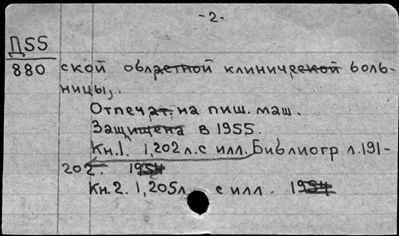 -2-
Д55
880 ской областной клинической боль-
ницы,.
Отпечат. на пиш. маш.
Защищена в 1955.
Кн.1. 1,202л. с илл. Библиогр л.191-
202. 1954
Кн.2. 1,205л с илл. 1954